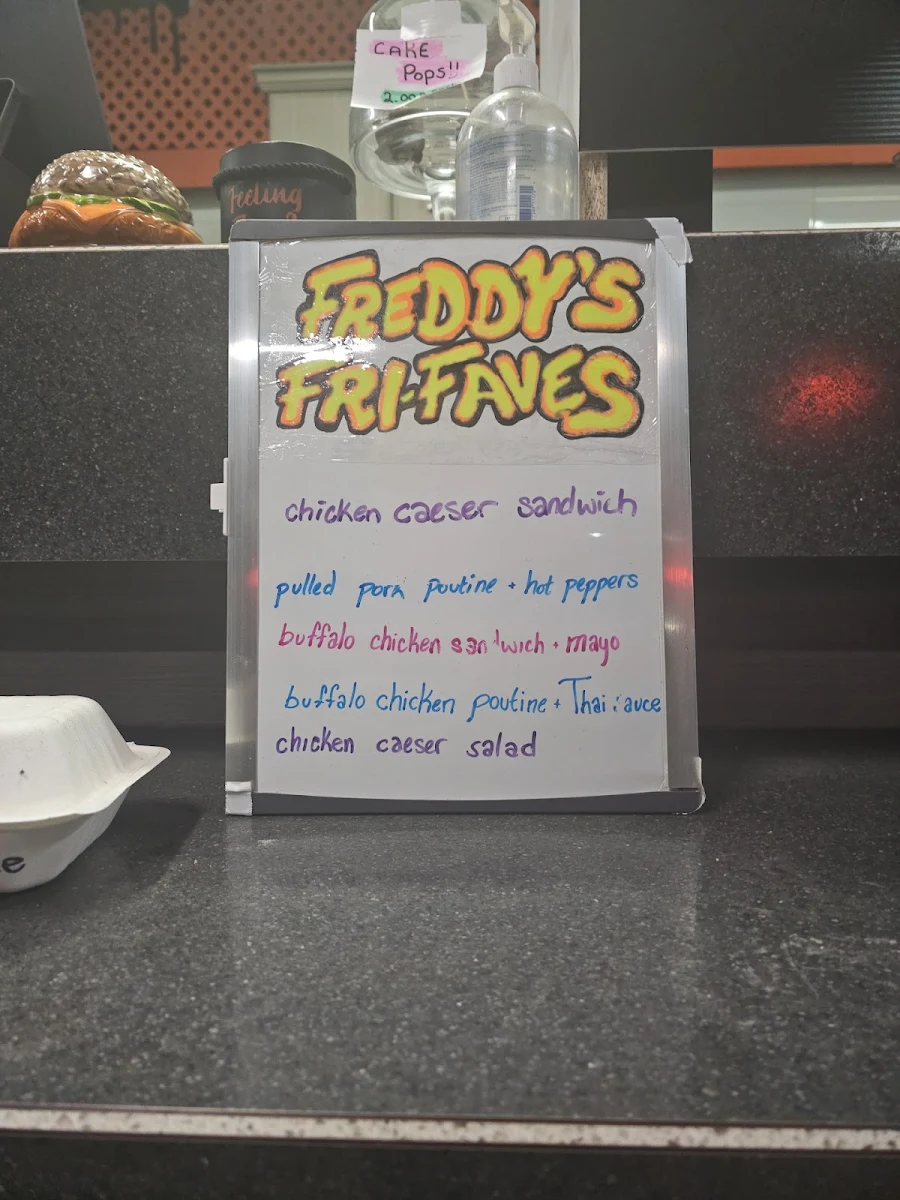 CAKE
Pops!!
2.00
Feeling
FREDDY'S
FRI-FAVES
chicken caeser sandwich
pulled pork poutine + hot peppers
buffalo chicken sandwich + mayo
buffalo chicken poutine + Thai sauce
chicken caeser salad